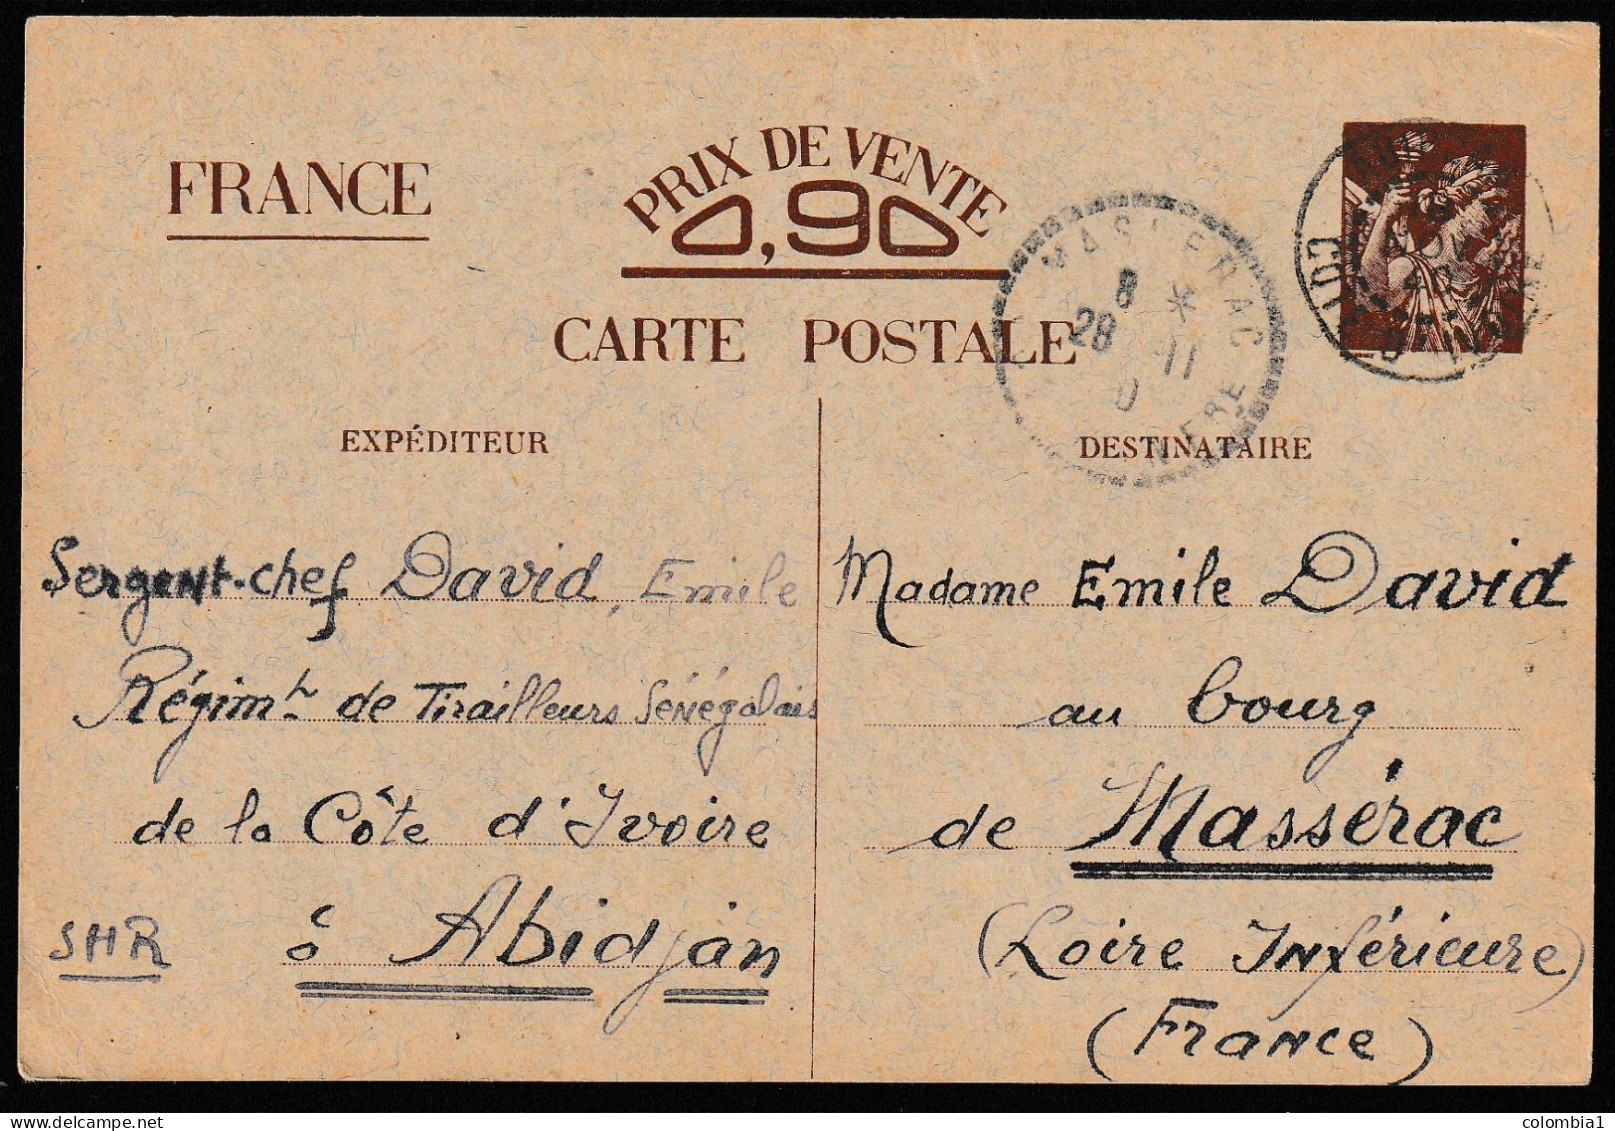 FRANCE
PRIX DE VENTE
0,90
CARTE POSTALE
MASSERAC
8 *
28 11
0
EXPÉDITEUR
Sergent-chef David, Emile
Régimt de Tirailleurs Sénégalais
de la Côte d'Ivoire
SHR à Abidjan
DESTINATAIRE
Madame Emile David
au bourg
de Massérac
(Loire Inférieure)
(France)
colombia1